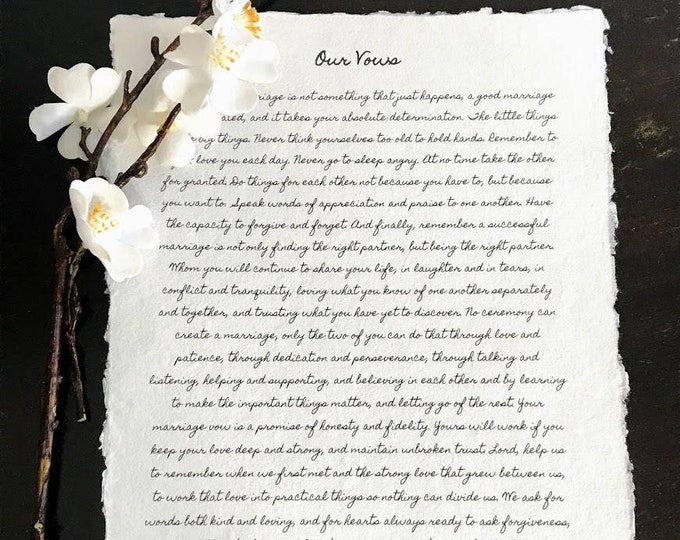 Our Vows
is not something that just happens, a good marriage
and it takes your absolute determination. The little things
things. Never think yourselves too old to hold hands. Remember to
love you each day. Never go to sleep angry. At no time take the other
for granted. Do things for each other not because you have to, but because
you want to. Speak words of appreciation and praise to one another. Have
the capacity to forgive and forget. And finally, remember a successful
marriage is not only finding the right partner, but being the right partner.
Whom you will continue to share your life, in laughter and in tears, in
conflict and tranquility, loving what you know of one another separately
and together, and trusting what you have yet to discover. No ceremony can
create a marriage; only the two of you can do that through love and
patience; through dedication and perseverance; through talking and
listening, helping and supporting, and believing in each other and by learning
to make the important things matter, and letting go of the rest. Your
marriage vow is a promise of honesty and fidelity. Yours will work if you
keep your love deep and strong, and maintain unbroken trust. Lord, help us
to remember when we first met and the strong love that grew between us,
to work that love into practical things so nothing can divide us. We ask for
words both kind and loving, and for hearts always ready to ask forgiveness,